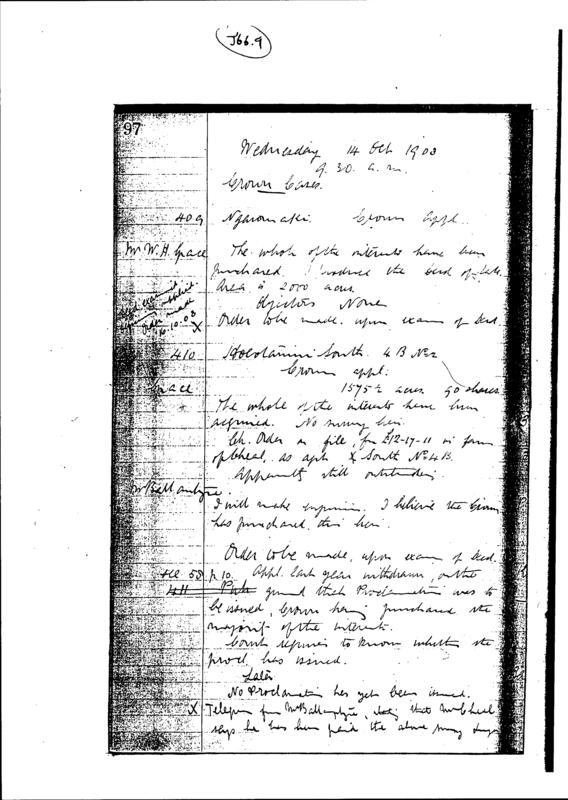 J66.9
97
Wednesday 14 Oct 1903
9.30 a.m.
Crown Cases.
409 Crown appl.
Mr W. H. Grace The whole of the interests have been
purchased. I produce the deed of sale.
Area is 2000 acres
Objectors None
Order to be made upon exam of deed.
Order made
16.10.03
X
410 South 4 B No 2
Crown appl.
Grace 1575½ acres 90 shares
The whole of the interests have been
acquired. No survey lien.
Ch. Order on file for £12-17-11 in favour
of Cheal, as agst X South No 4 B.
Apparently still outstanding.
Mr Ballantyne
I will make enquiries. I believe the Crown
has purchased this lien.
Order to be made, upon exam of deed.
see 58 p 10. Appl. last year withdrawn, on the
411 ground that Proclamation was to
be issued, Crown having purchased the
majority of the interests.
Court requires to know whether the
procl. has issued.
Later
No Proclamation has yet been issued.
X Telegram from Mr Ballantyne, that Mr Cheal
says he has been paid the above survey